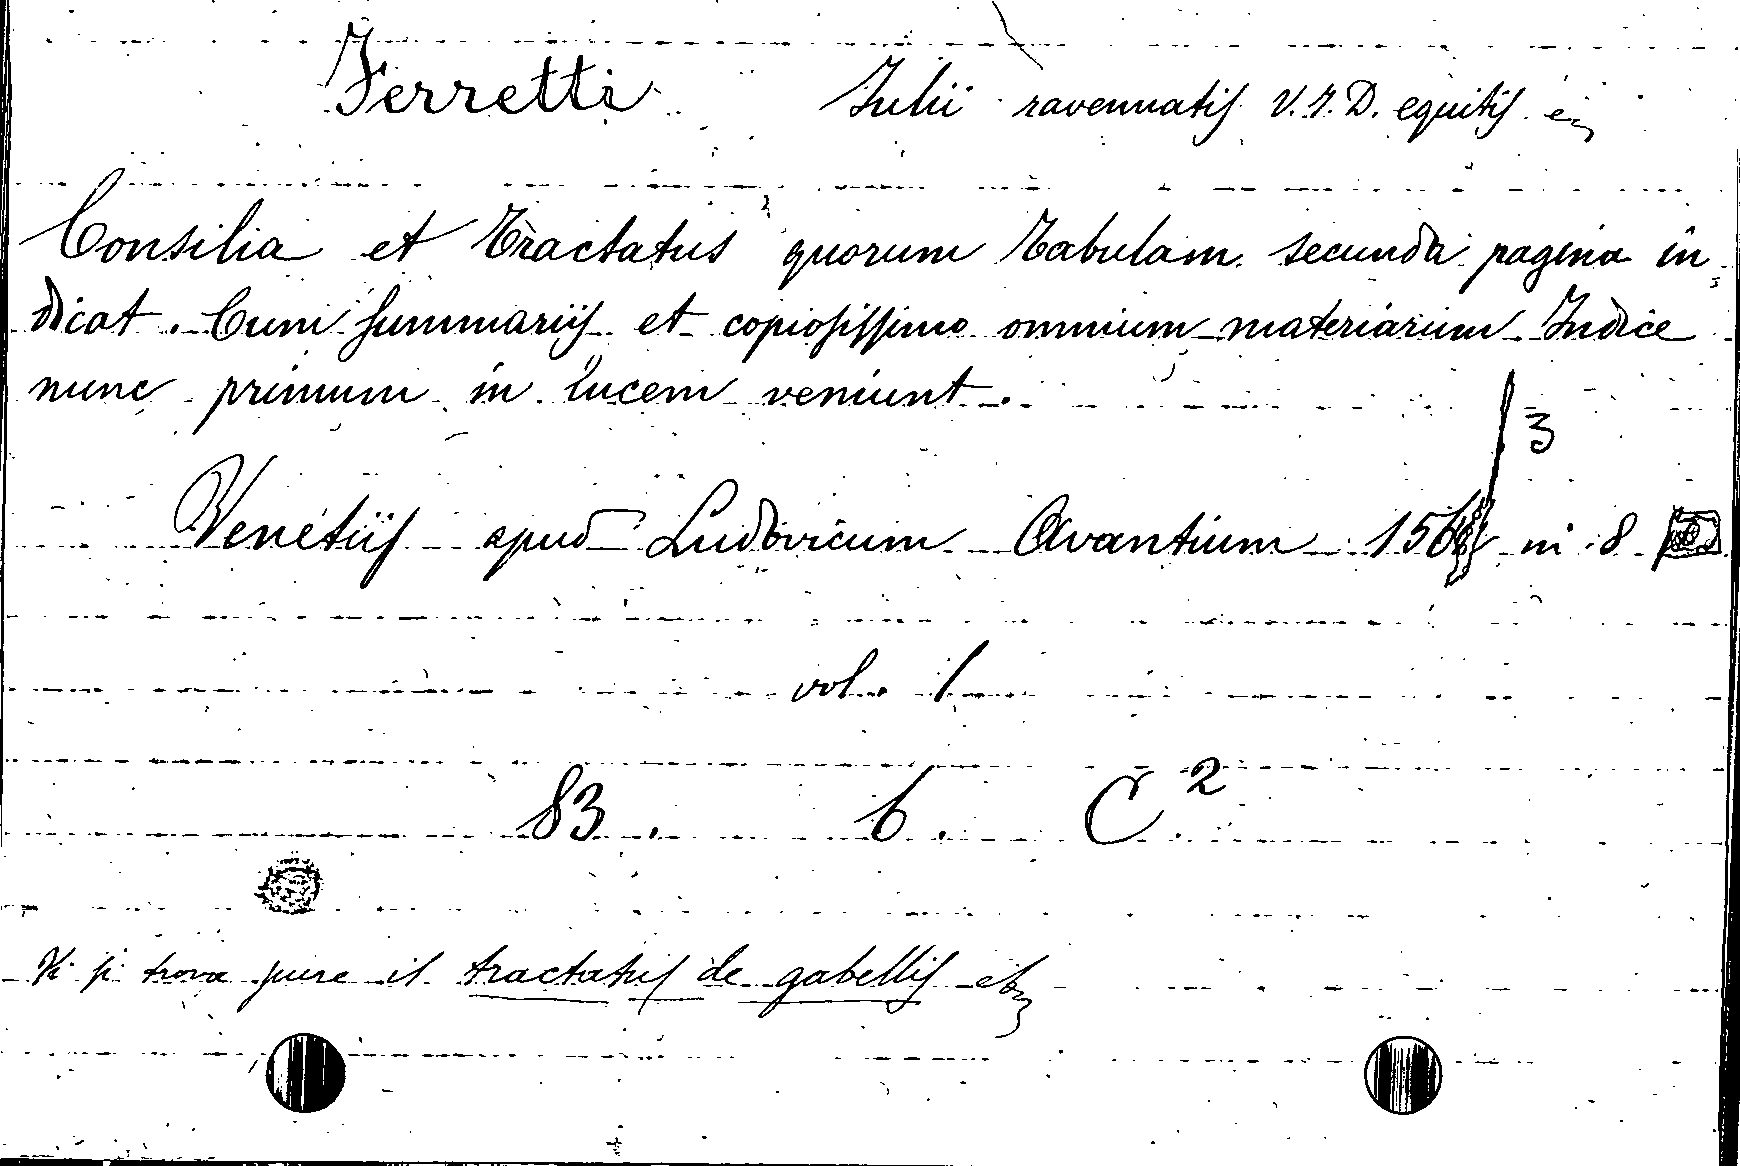 Ferretti Iulii ravennatis V.I.D. equitis
Consilia et Tractatus quorum Tabulam secunda pagina in
dicat. Cum summariis et copiosissimo omnium materiarum Indice
nunc primum in lucem veniunt.
3
Venetiis apud Ludovicum Avantium 156 in 8
vol. 1
83. 6. C.2
Vi si trova pure il tractatus de gabellis etc